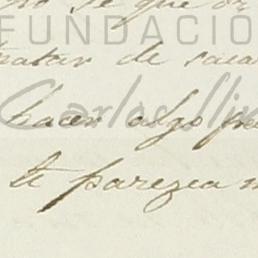 no se que or
FUNDACIO
tratar de saca
Carlos
hacer algo
te parezca